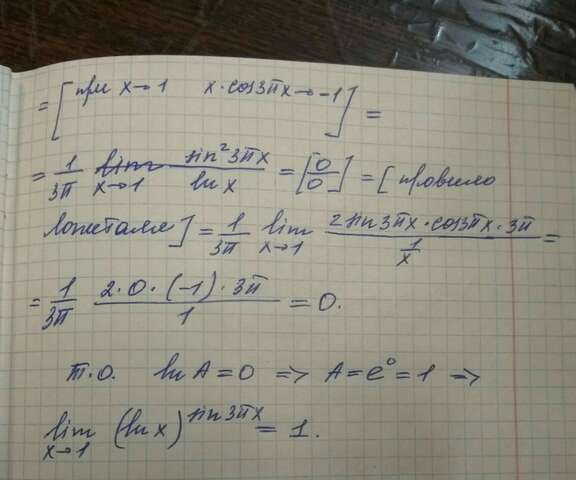 = [при x→1 x·cos3πx→-1] =
= 1/3π lim x→1 sin²3πx / ln x = [0/0] = [правило
Лопиталя] = 1/3π lim x→1 2sin3πx·cos3πx·3π / 1/x =
= 1/3π 2·0·(-1)·3π / 1 = 0.
т.о. ln A = 0 => A = e⁰ = 1 =>
lim x→1 (ln x)^sin3πx = 1.